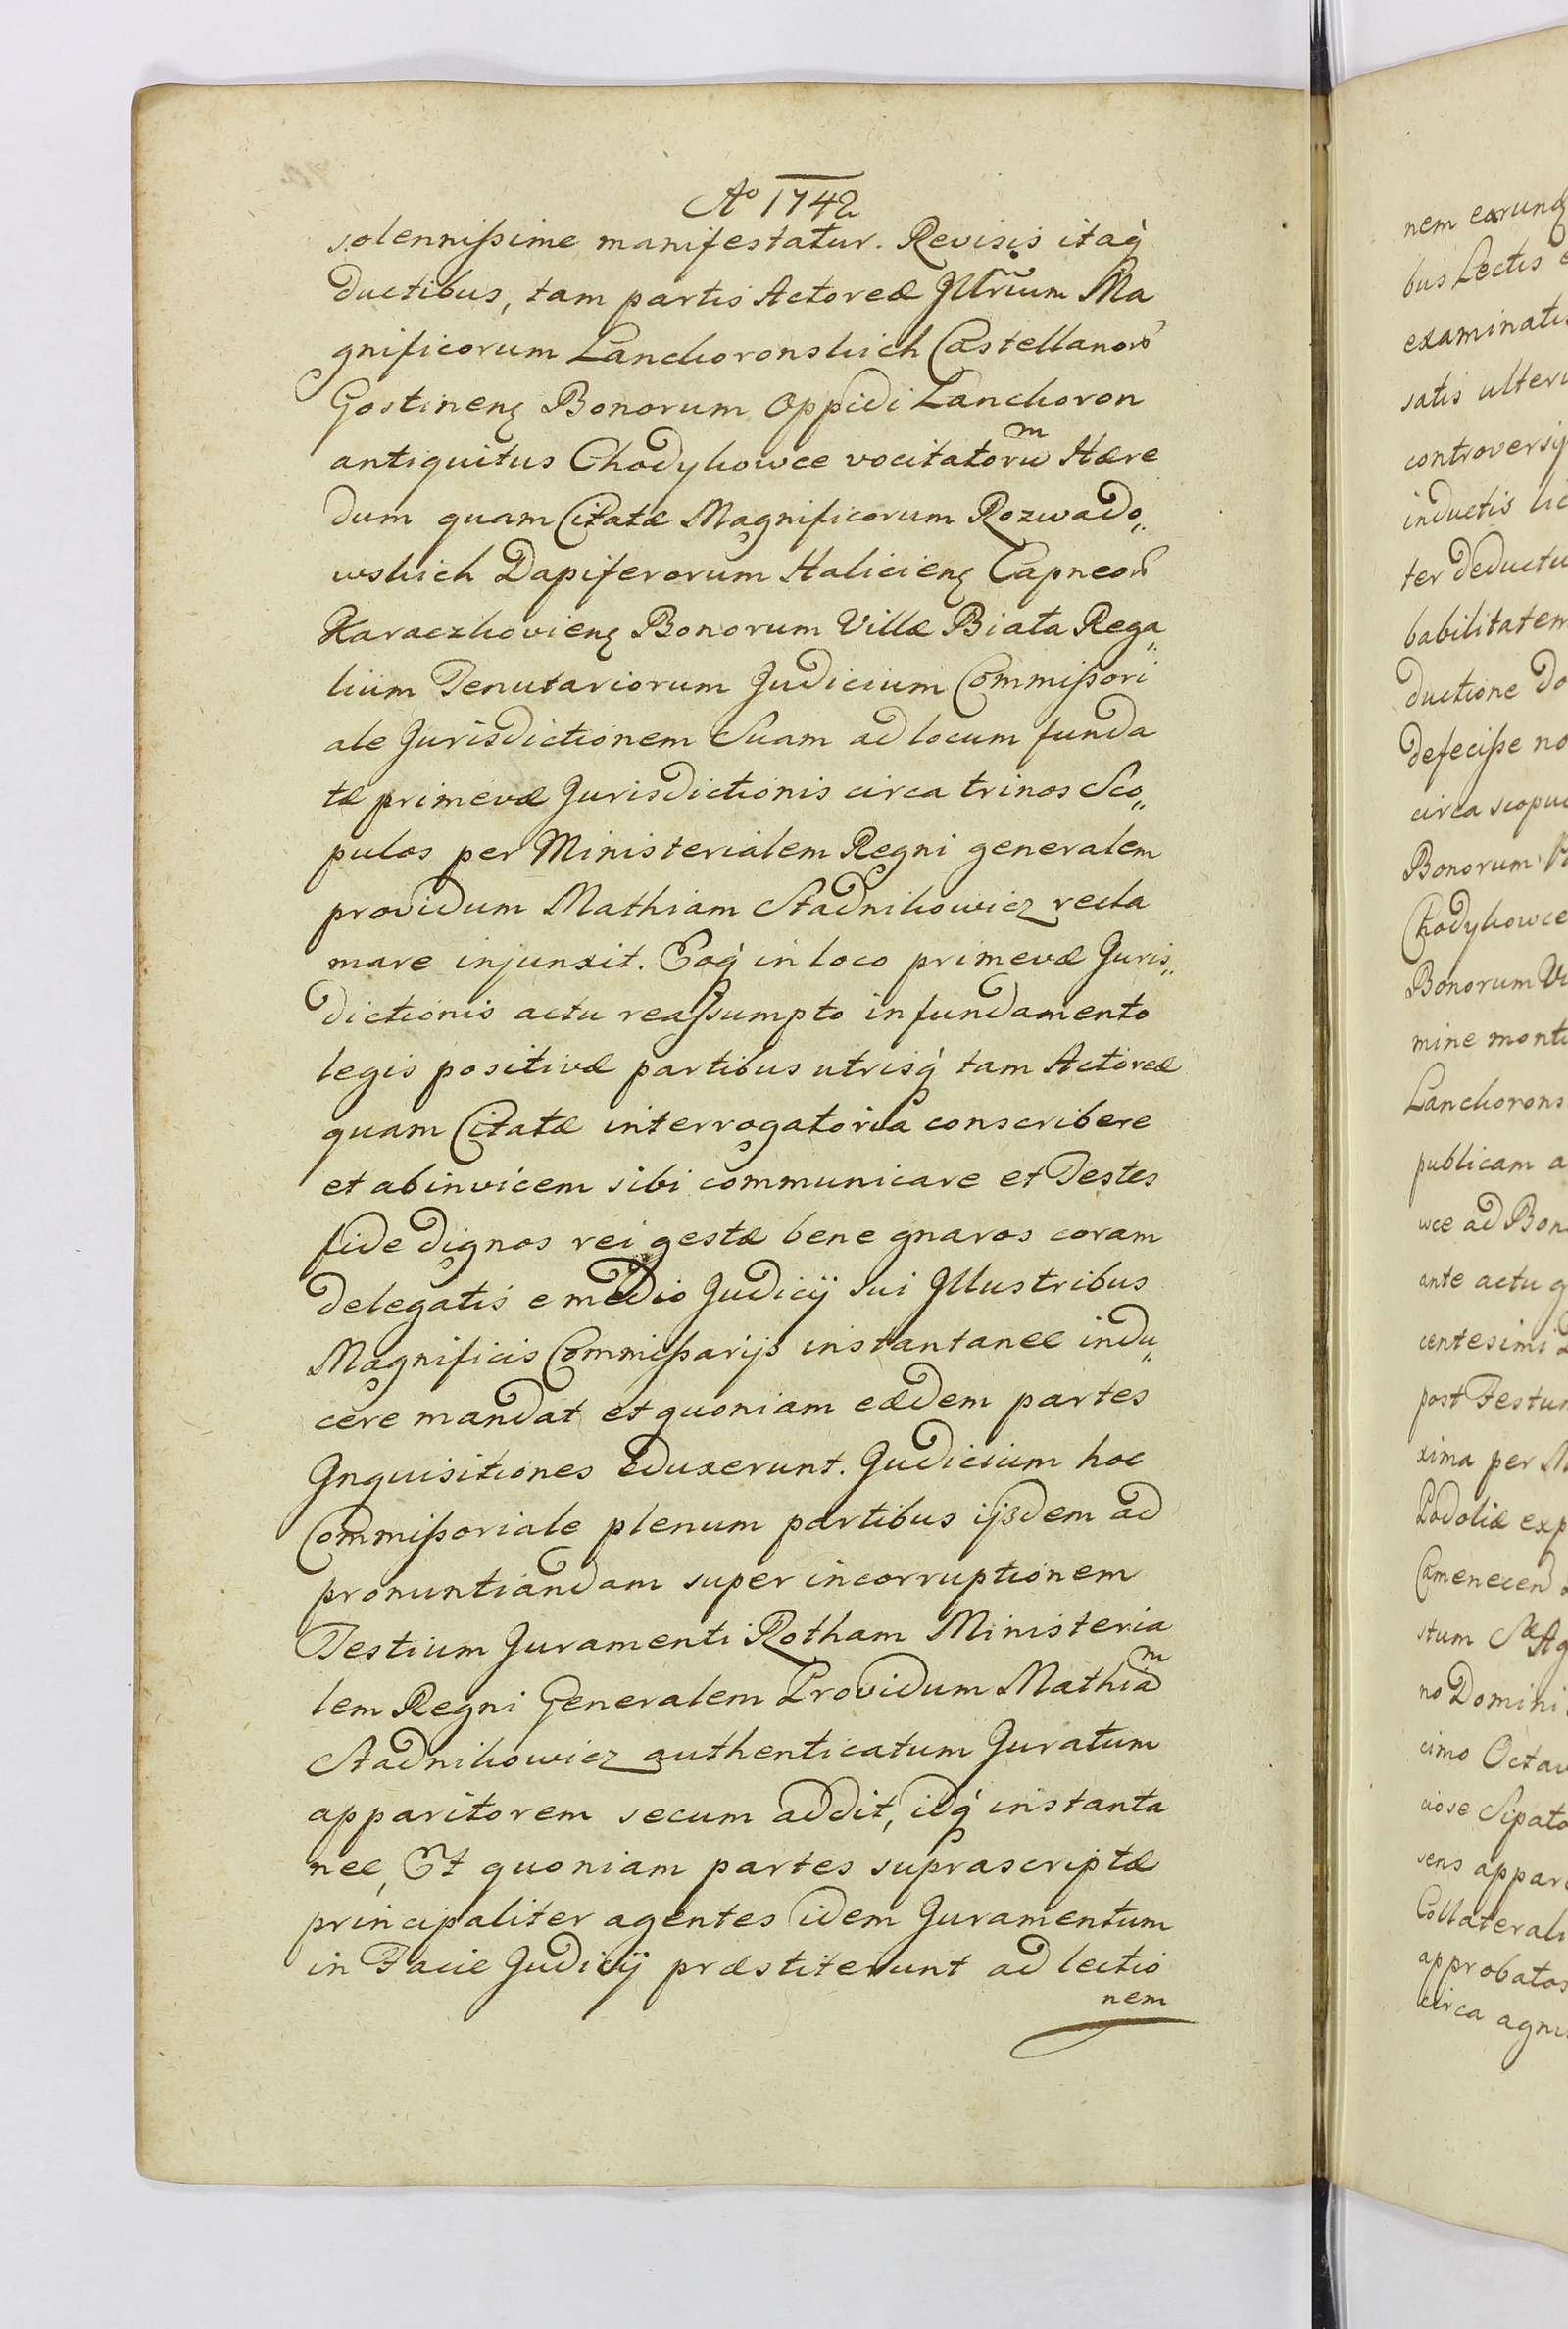 Aº 1742
solennissime manifestatur. Revisis itaq́
ductibus, tam partis Actoreæ Jllr̃ium Ma
gnificorum Lanckoronskich Castellanorũ
Gostinenς Bonorum Oppidi Lanckoron
antiquitus Chodykowce vocitatorum Hære
dum quam Citatæ Magnificorum Rozwado„
wskich Dapiferorum Halicienς Capneorũ
Karaczkovienς Bonorum Villæ Biała Rega„
lium Tenutariorum Judicium Commissori
ale Jurisdictionem Suam ad locum funda
tæ primevæ Jurisdictionis circa trinos Sco„
pulos per Ministerialem Regni generalem
providum Mathiam Stadnikowicz recla
mare injunxit. Eoq́ in loco primevæ Juris„
dictionis actu reassumpto in fundamento
legis positivæ partibus utrisq́ tam Actoreæ
quam Citatæ interrogatoria conscribere
et abinvicem sibi communicare et Testes
fide dignos rei gestæ bene gnaros coram
delegatis e medio Judicij sui Jllustribus
Magnificis Commissarijs instantanee indu„
cere mandat et quoniam eædem partes
Jnquisitiones eduxerunt. Judicium hoc
Commissoriale plenum partibus ijsdem ad
pronuntiandam super incorruptionem
Testium Juramenti Rotham Ministeria
lem Regni Generalem Providum Mathiam
Stadnikowicz authenticatum Juratum
apparitorem secum addit, idq́ instanta
nee, Et quoniam partes suprascriptæ
principaliter agentes idem Juramentum
in Facie Judicij præstiterunt ad lectio
nem
nem earunq
bus Lectis
examinatis
satis ulteri
controversij
inductis
ter deductu
babilitatem
ductione do
defecisse no
circa scopu
Bonorum
Chodykowce
Bonorum
mine mont
Lanckorons
publicam a
wce ad Bon
ante actu
centesimi
post Festum
xima per M
Podoliæ exp
Camenecen
stum Sæ Ag
no Domini
cimo Octav
ciose Sipato
sens appar
Collaterali
approbatos
circa agni